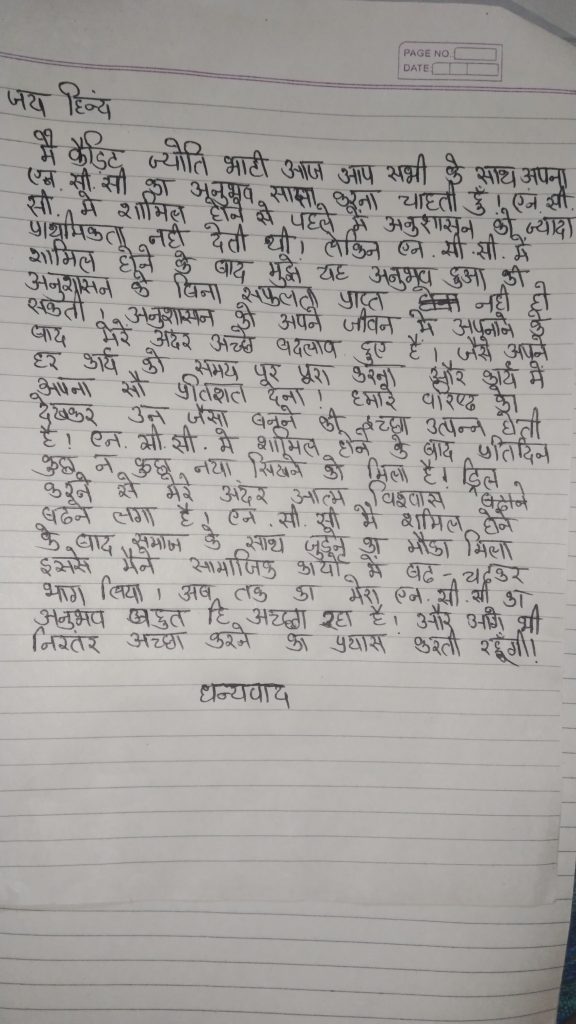 PAGE NO.
DATE:
जय हिन्द
मैं कैडिट ज्योति भाटी आज आप सभी के साथ अपना
एन. सी. सी का अनुभव साझा करना चाहती हूँ। एन. सी.
सी. में शामिल होने से पहले में अनुशासन को ज्यादा
प्राथमिकता नही देती थी। लेकिन एन. सी. सी. में
शामिल होने के बाद मुझे यह अनुभव हुआ की
अनुशासन के बिना सफलता प्राप्त नही हो
सकती। अनुशासन को अपने जीवन में अपनाने के
बाद मेरे अंदर अच्छे बदलाव हुए है, जैसे अपने
हर कार्य को समय पर पूरा करना और कार्य में
अपना सौ प्रतिशत देना। हमारे वरिष्ठ को
देखकर उन जैसा बनने की इच्छा उत्पन्न होती
है। एन. सी. सी. में शामिल होने के बाद प्रतिदिन
कुछ न कुछ नया सिखने को मिला है। ड्रिल
करने से मेरे अंदर आत्म विश्वास बढाने
बढने लगा है। एन. सी. सी में शामिल होने
के बाद समाज के साथ जुड़ने का मौका मिला
इससे मैने सामाजिक कार्यो में बढ-चढ़कर
भाग लिया। अब तक का मेरा एन. सी. सी का
अनुभव बहुत हि अच्छा रहा है। और आगे भी
निरंतर अच्छा करने का प्रयास करती रहूँगी।
धन्यवाद